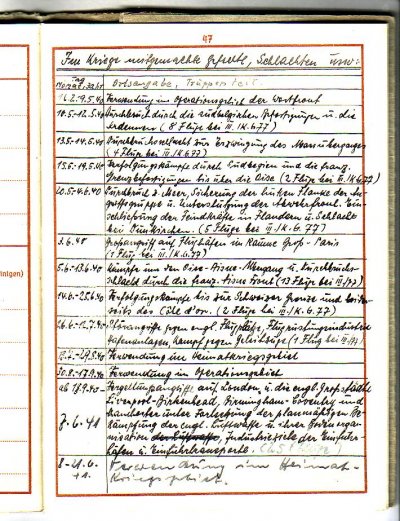 47
Im Kriege mitgemachte Gefechte, Schlachten usw.
Tag, Monat, Jahr Ortsangabe, Truppenteil
9.5.40 Verwendung im Operationsgebiet der Westfront
10.5.-12.5.40 Durchbruch durch die südbelgischen Befestigungen u. die
Ardennen (8 Flüge bei III./K.G.77)
13.5.-14.5.40 Durchbruchsschlacht zur Erzwingung des Maasüberganges
(4 Flüge bei III./K.G.77)
15.5.-19.5.40 Verfolgungskämpfe durch Südbelgien und die franz.
Grenzbefestigungen bis über die Oise (2 Flüge bei III./K.G.77)
20.5.-4.6.40 Durchbruch z. Meer, Sicherung der linken Flanke der An-
griffsgruppe u. Unterstützung der Abwehrfront. Ein-
schließung der Feindkräfte in Flandern u. Schlacht
bei Dünkirchen. (5 Flüge bei III./K.G.77)
3.6.40 Großangriff auf Flughäfen im Raume Groß-Paris
(1 Flug bei III./K.G.77)
5.6.-13.6.40 Kämpfe um den Oise-Aisne- u. Durchbruchs-
schlacht durch die franz. Aisne Front (13 Flüge bei III./77)
14.6.-25.6.40 Verfolgungskämpfe bis zur Schweizer Grenze und beider-
seits des Côte d'or. (2 Flüge bei III./K.G.77)
26.6.-12.7.40 Störangriffe gegen engl. Flugplätze, Flugrüstungsindustrie
Hafenanlagen, Kampf gegen Geleitzüge (1 Flug bei III./77)
29.8.40 Verwendung im Heimatkriegsgebiet
30.8.-17.9.40 Verwendung im Operationsgebiet
ab 18.9.40- Vergeltungsangriffe auf London u. die engl. Großstädte
Liverpool-Birkenhead, Birmingham-Coventry und
Manchester unter Fortsetzung der planmäßigen Be-
7.6.41 kämpfung der engl. Luftwaffe u. ihrer Bodenorga-
nisation der Luftwaffe, Industrieziele der Einfuhr-
häfen u. Einfuhrtransporte.
8-21.6. Verwendung im Heimat-
41. kriegsgebiet.